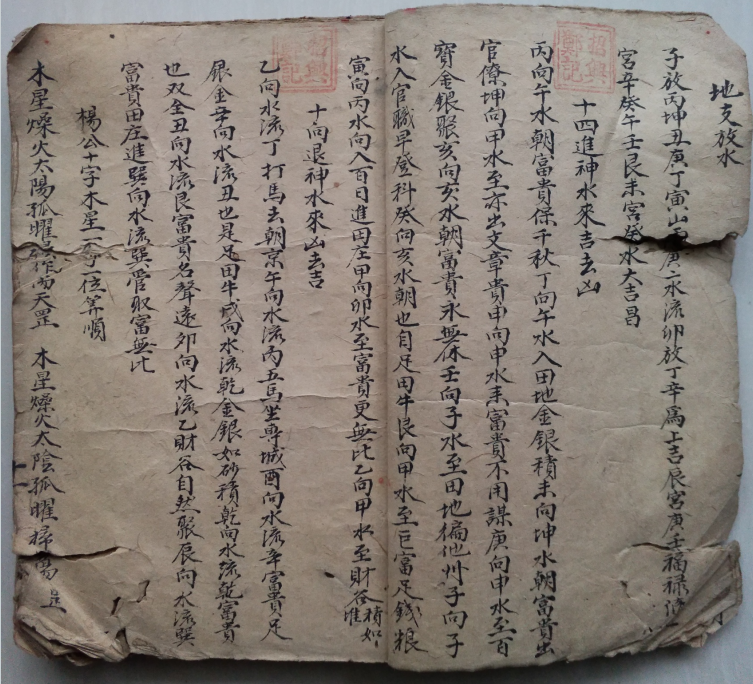 地支放水
子放丙坤丑庚丁寅山 庚二水流卯放丁辛為上吉辰宮庚壬福禄
宮辛癸午壬艮未宮癸水大吉昌
十四進神水來吉去凶
丙向午水朝富貴保千秋丁向午水入田地金銀積未向坤水朝富貴出
官僚坤向甲水至亦出文章貴申向申水来富貴不用謀庚向申水至百
寶金銀聚亥向亥水朝富貴永無休壬向子水至田地徧他州子向子
水入官職早登科癸向亥水朝也自足田牛艮向甲水至巨富足錢粮
寅向丙水向入百日進田庄甲向卯水至富貴更無比乙向甲水至財谷積如堆
十向退神水來凶去吉
乙向水流丁打馬去朝京午向水流丙五馬坐專城酉向水流辛富貴足
銀金辛向水流丑也是足田牛戍向水流乾金銀如砂積乾向水流乾富貴
也双全丑向水流艮富貴名聲遠卯向水流乙財谷自然聚辰向水流巽
富貴田庄進巽向水流巽管取富無比
楊公十字木星一 一位筭順
木星燥火太陽孤曜 天罡 木星燥火太陰孤曜掃